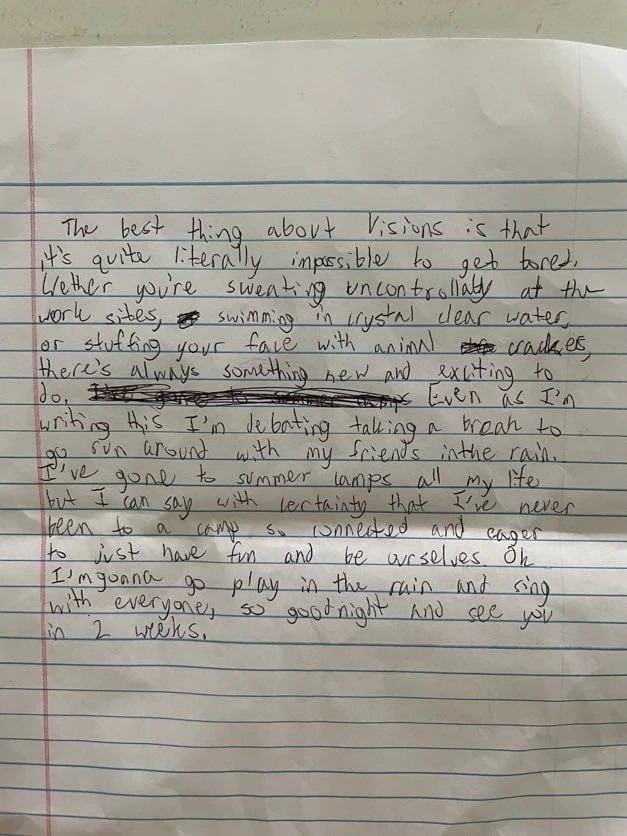 The best thing about Visions is that
it's quite literally impossible to get bored.
Wether you're sweating uncontrollably at the
work sites, swimming in crystal clear water,
or stuffing your face with animal crackes,
there's always something new and exciting to
do. Even as I'm
writing this I'm debating taking a break to
go run around with my friends in the rain.
I've gone to summer camps all my life
but I can say with certainty that I've never
been to a camp so connected and eager
to just have fun and be ourselves. Ok
I'm gonna go play in the rain and sing
with everyone, so goodnight and see you
in 2 weeks.